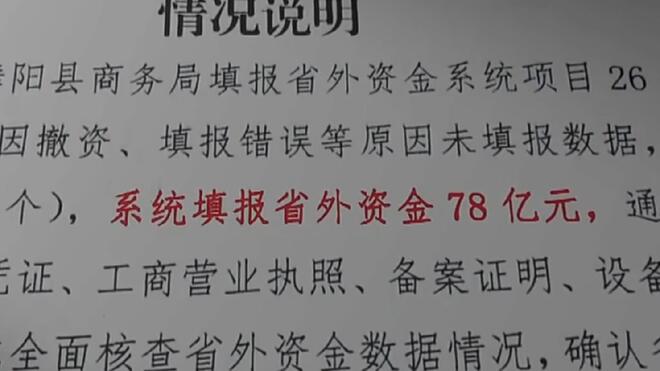 情况说明
阳县商务局填报省外资金系统项目26
因撤资、填报错误等原因未填报数据，
个），系统填报省外资金78亿元，通
证、工商营业执照、备案证明、设备
全面核查省外资金数据情况，确认